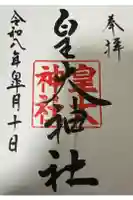 奉拝
皇大神社
皇大神社
令和八年皐月十日